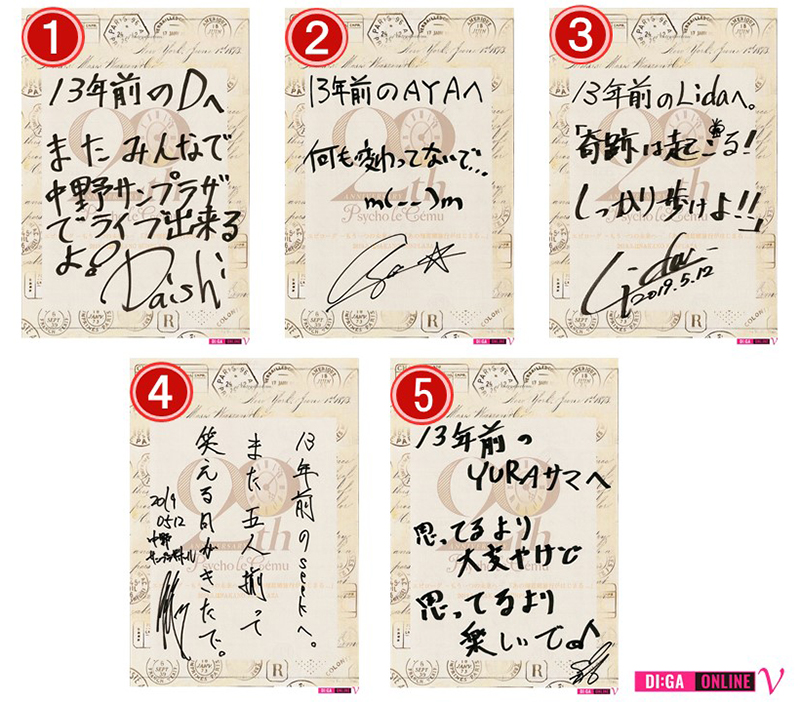 1
13年前のDへ
またみんなで
中野サンプラザ
でライブ出来る
よ!
Daishi
20th
Psycho le Cému
DI:GA ONLINE V
2
13年前のAYAへ
何も変わってないで...
m(--)m
20th
ANNIVERSARY
Psycho le Cému
R
DI:GA ONLINE V
3
13年前のLidaへ。
「奇跡は起こる!
しっかり歩けよ!!」
Lida
2019.5.12
R
DI:GA ONLINE V
4
13年前のseekへ。
また五人揃って
笑える日がきたで。
2019
0512
中野
サンプラザホール
20th
Psycho le Cému
R
DI:GA ONLINE V
5
13年前の
YURAサマへ
思ってるより
大変やけど
思ってるより
楽しいで♪
R
DI:GA ONLINE V
DI:GA ONLINE V